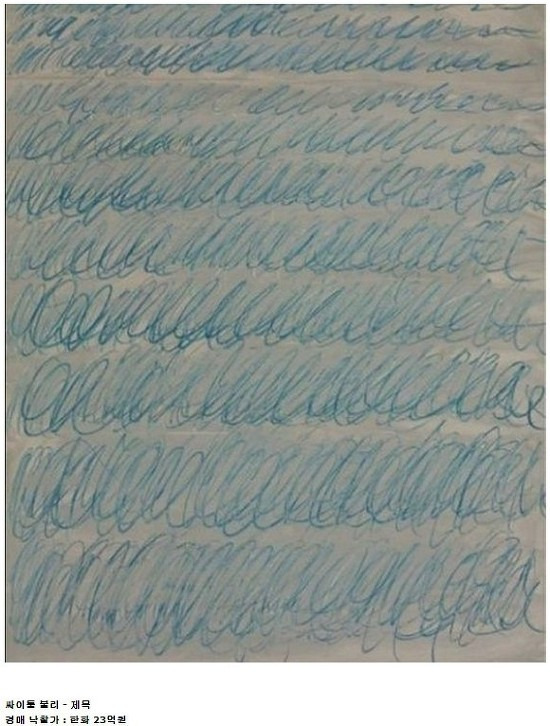 싸이톰 블리 - 제목
경매 낙찰가 : 한화 23억원